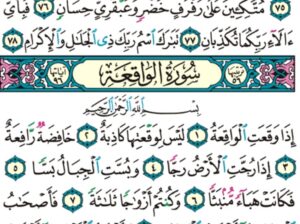 ٧٥ مُتَّكِـِٔينَ عَلَىٰ رَفْرَفٍ خُضْرٍ وَعَبْقَرِىٍّ حِسَانٍ ٧٦ فَبِأَىِّ
ءَالَآءِ رَبِّكُمَا تُكَذِّبَانِ ٧٧ تَبَٰرَكَ ٱسْمُ رَبِّكَ ذِى ٱلْجَلَٰلِ وَٱلْإِكْرَامِ ٧٨
ترتيبها ٥٦ سُورَةُ الْوَاقِعَةِ آياتها ٩٦
بِسْمِ ٱللَّهِ ٱلرَّحْمَٰنِ ٱلرَّحِيمِ
إِذَا وَقَعَتِ ٱلْوَاقِعَةُ ١ لَيْسَ لِوَقْعَتِهَا كَاذِبَةٌ ٢ خَافِضَةٌ رَّافِعَةٌ
٣ إِذَا رُجَّتِ ٱلْأَرْضُ رَجًّا ٤ وَبُسَّتِ ٱلْجِبَالُ بَسًّا ٥
فَكَانَتْ هَبَآءً مُّنۢبَثًّا ٦ وَكُنتُمْ أَزْوَٰجًا ثَلَٰثَةً ٧ فَأَصْحَٰبُ